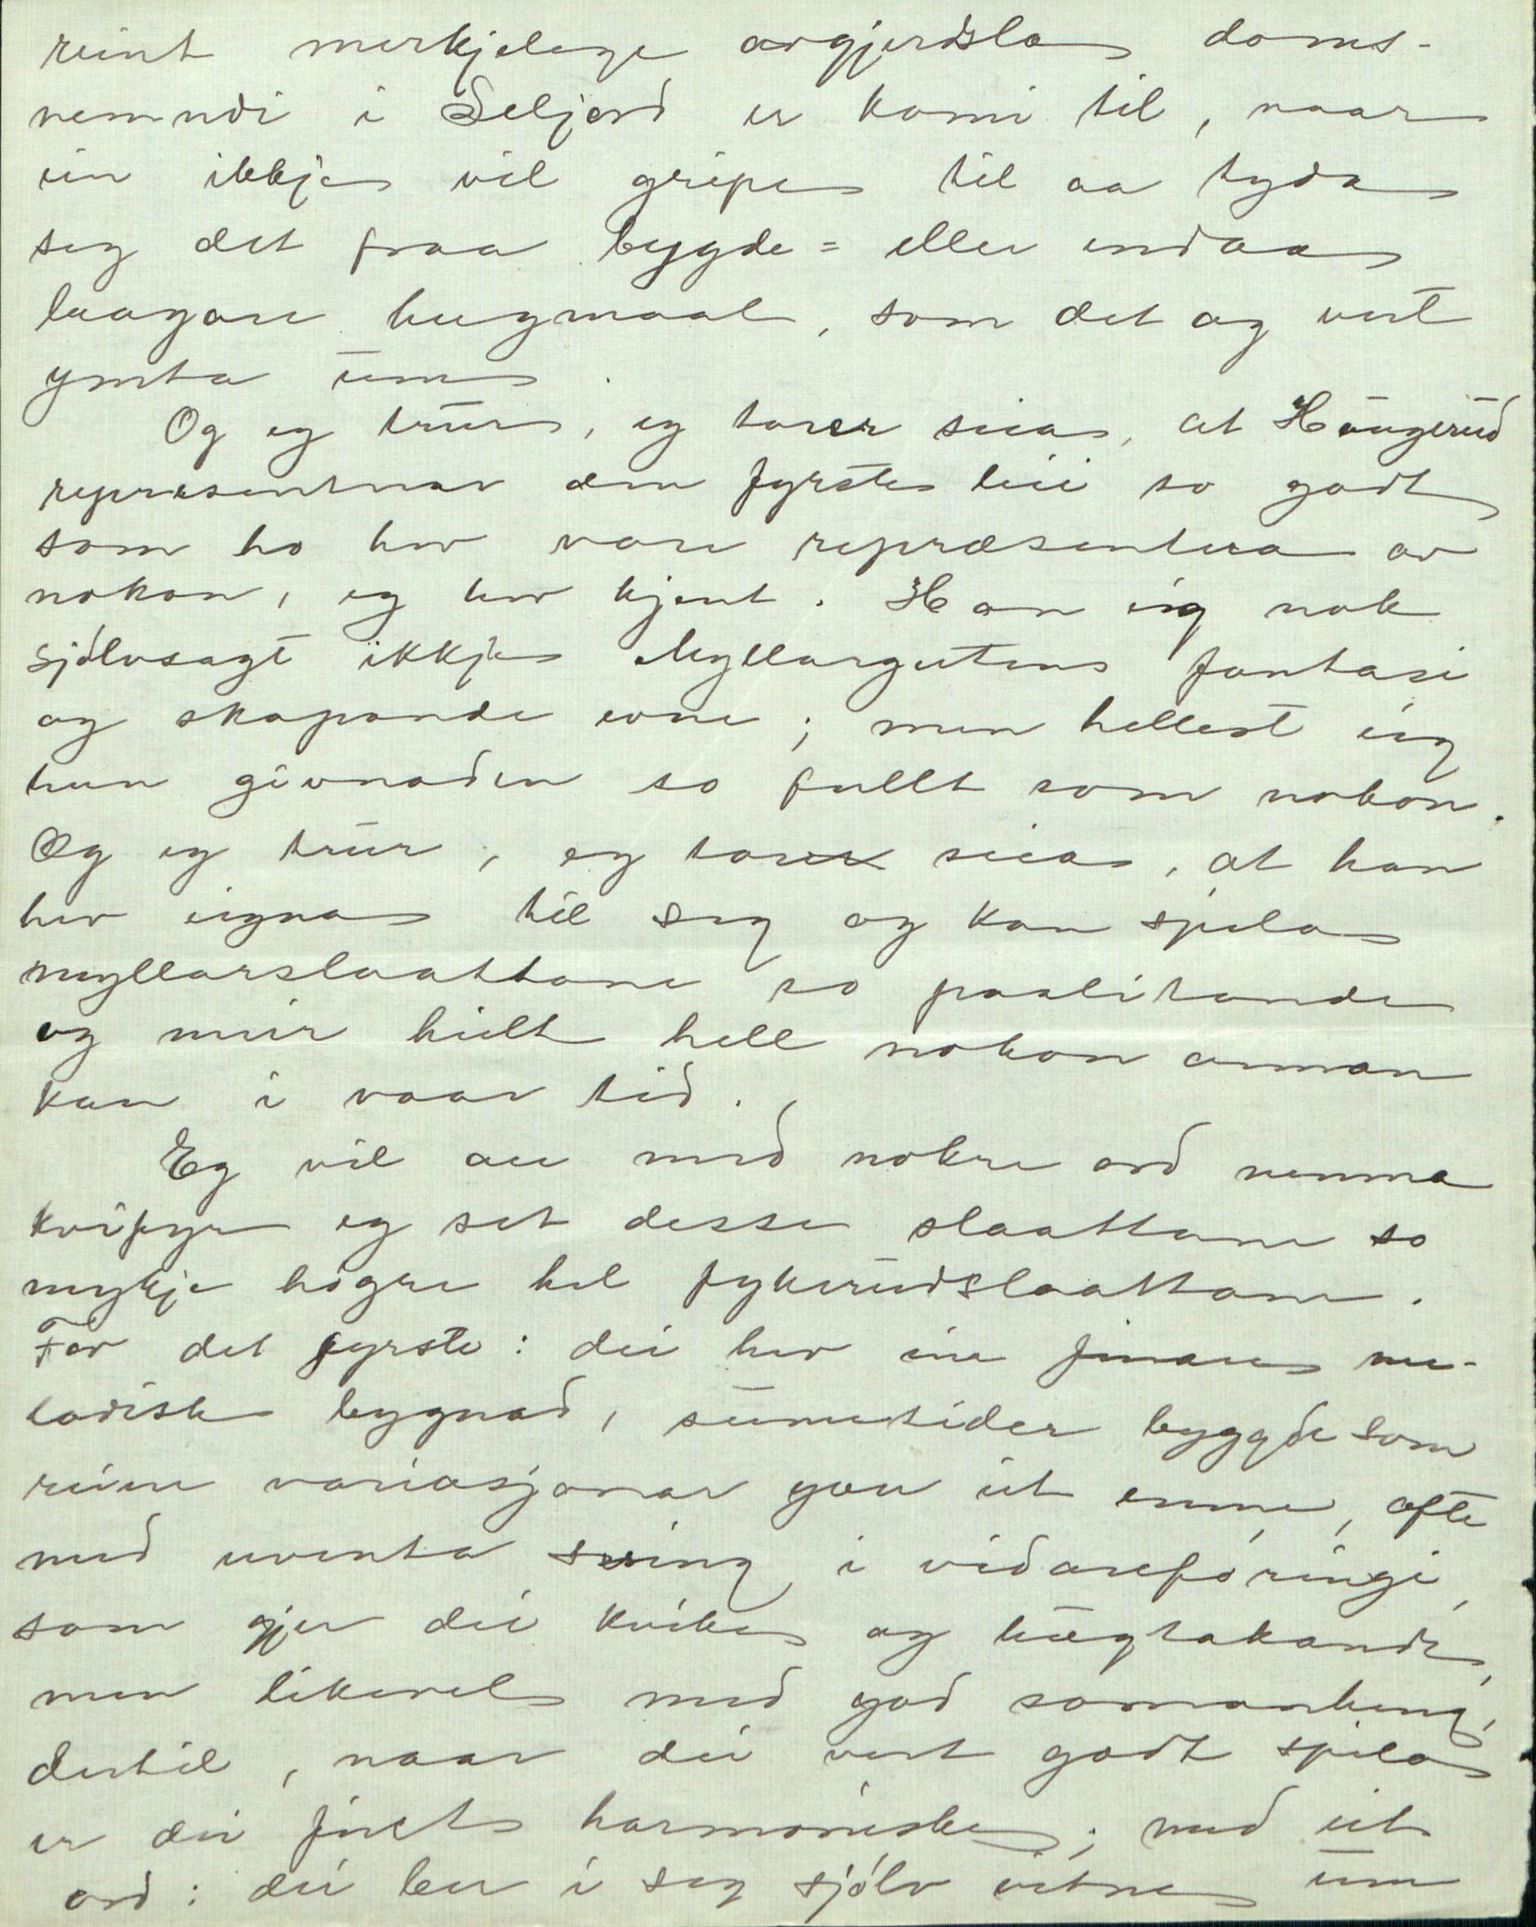 reint merkjelege avgjerdsla doms-
nemndi i Seljord er komi til, naar
ein ikkje vil gripe til aa tyda
seg det fraa bygde- eller endaa
laagare hugmaal, som det og vert
ymta um.
Og eg trur, eg torer seia, at Haugerud
representerar den fyrste leii so godt
som ho hev vore repræsentera av
nokon, eg hev kjent. Han eig nok
sjølvsagt ikkje Myllargutens fantasi
og skapande evne; men hellest eig
han givnaden so fullt som nokon.
Og eg trur, eg torer seia, at han
hev eigna til seg og kan spela
myllarslaattane so paalitande
og meir heilt hell nokon annan
kan i vaar tid.
Eg vil au med nokre ord nemna
kvifyr eg set desse slaattane so
mykje høgre hel fykerudslaattane.
For det fyrste: dei hev ein finare me-
lodisk bygnad, sumetider bygde som
reine variasjonar yver eit emne, ofte
med uventa sving i vidareføringi,
som gjer dei kvike og hugtakande,
men likevel med god samanheng,
dertil, naar dei vert godt spela
er dei fint harmoniske; med eit
ord: dei ber i seg sjølv vitne um